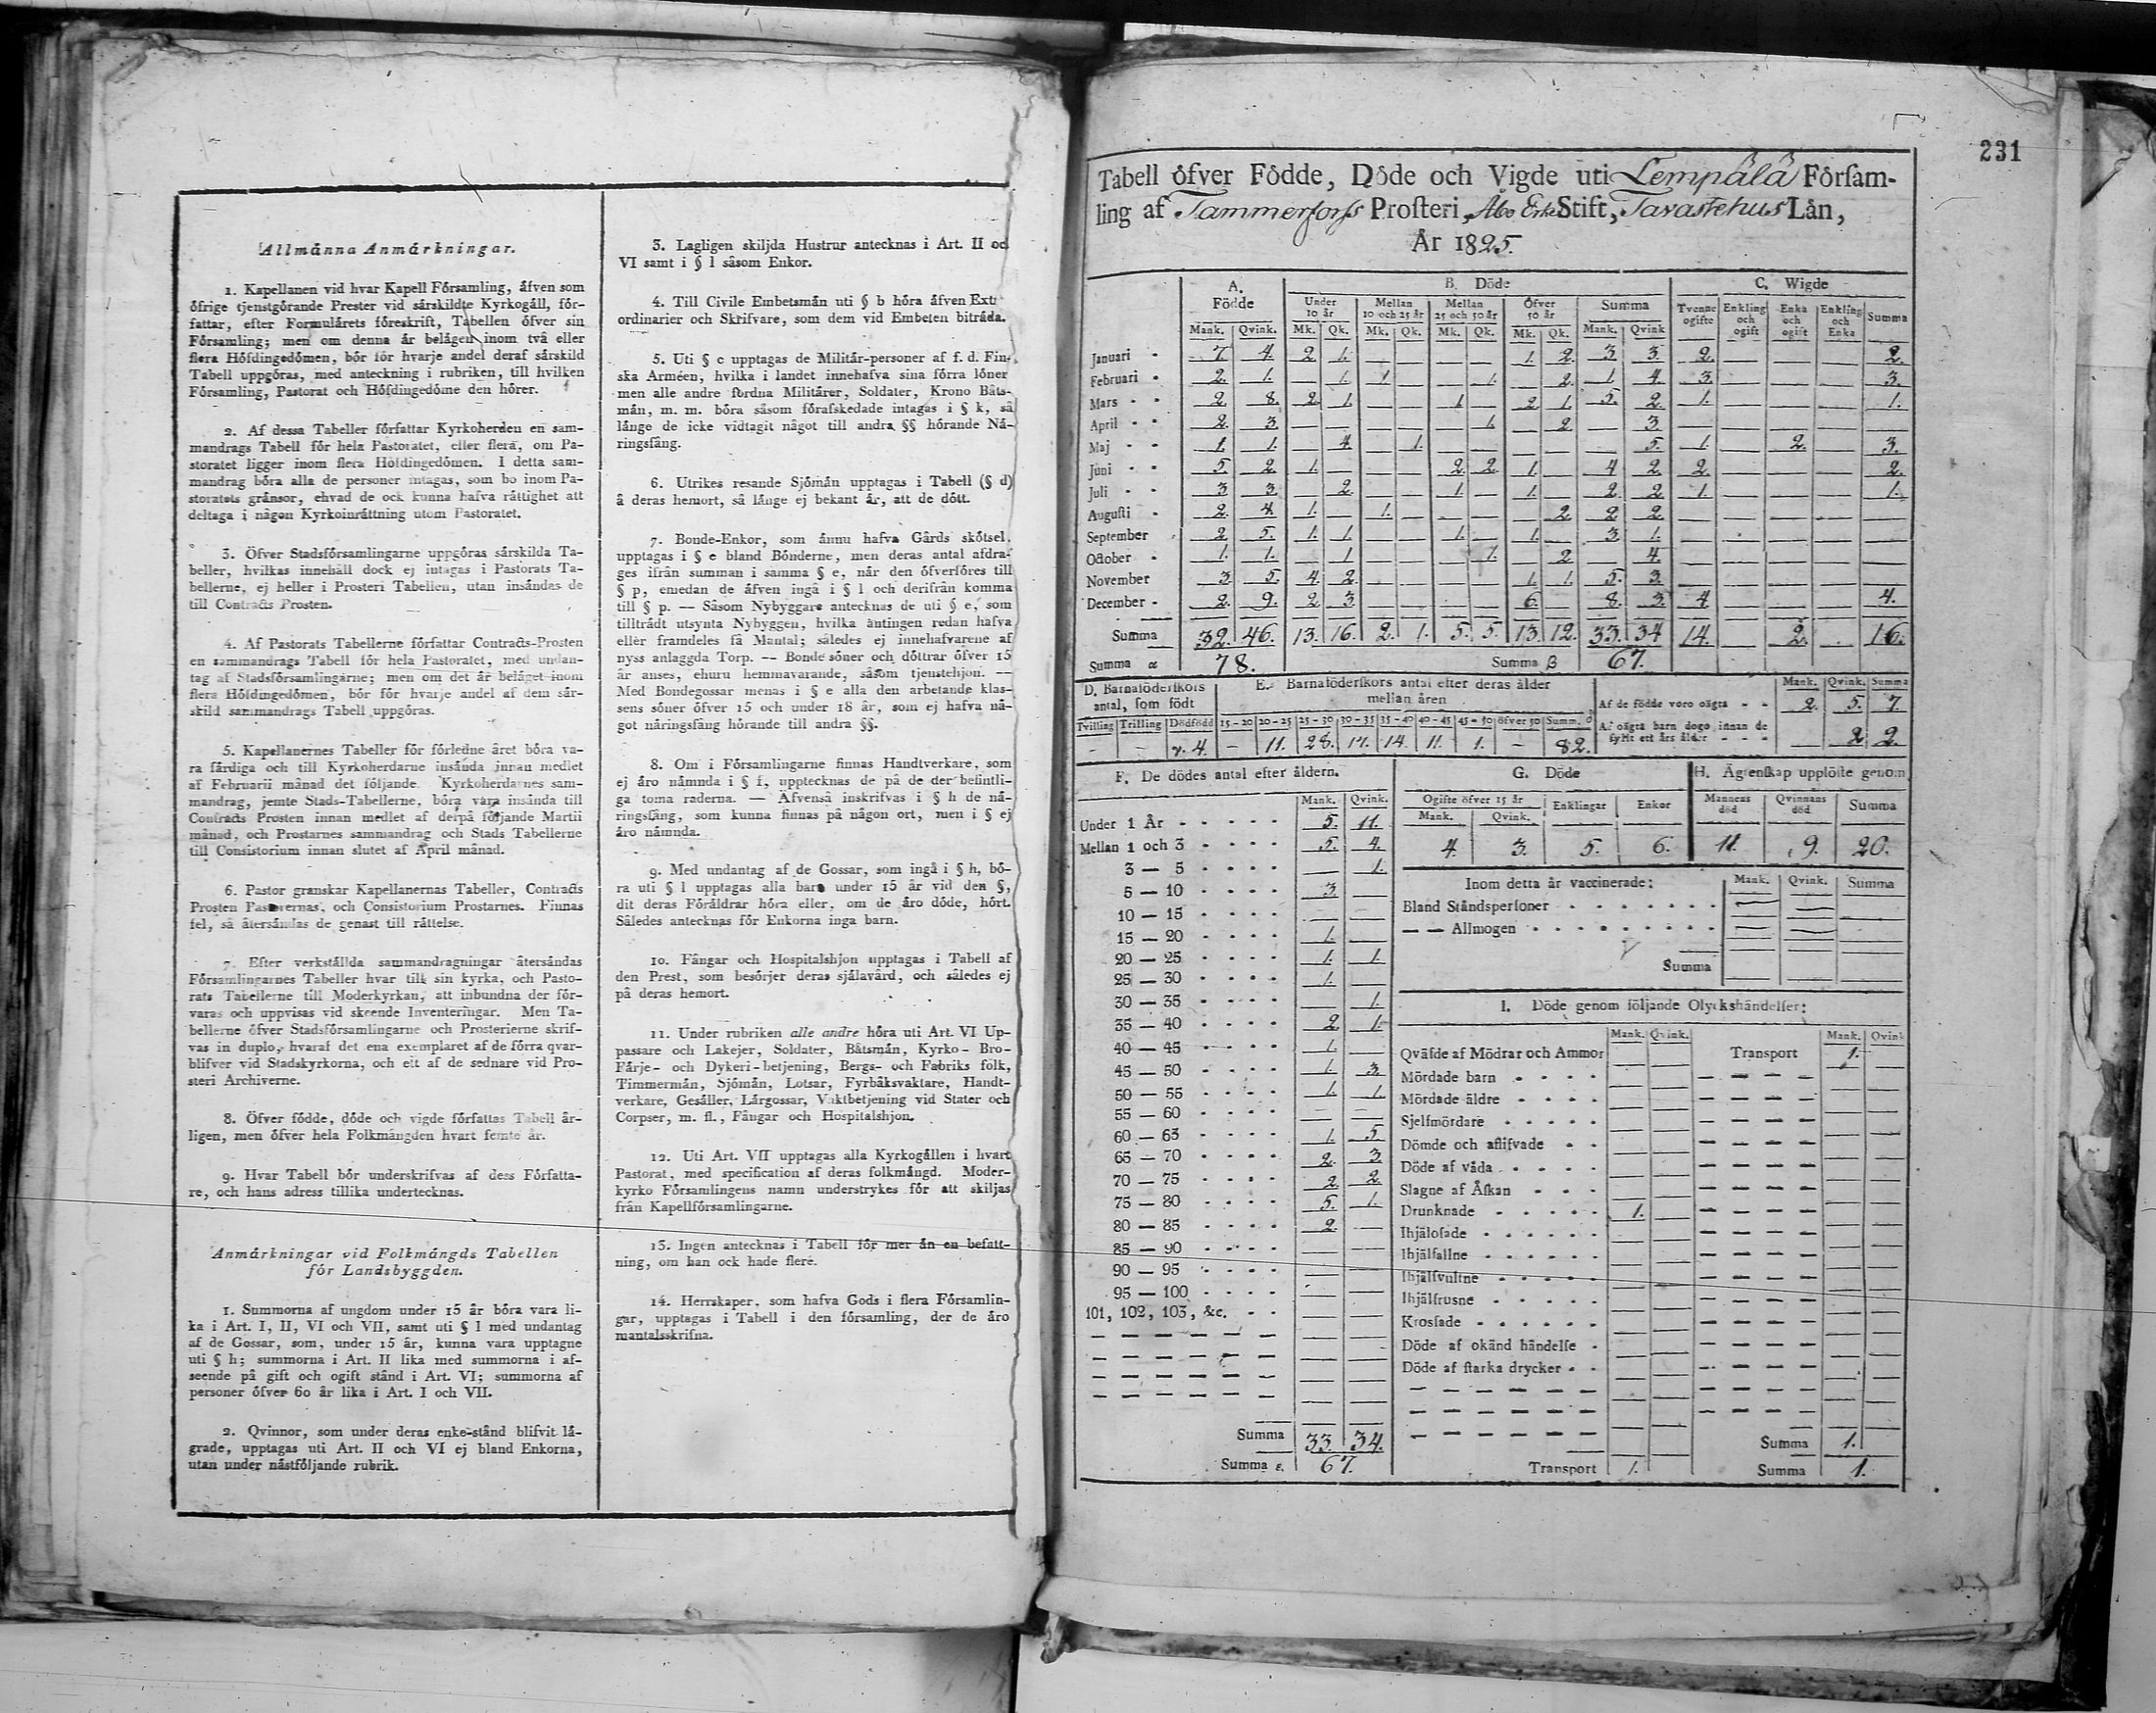 Allmånna Anmårkningar.
1. Kapellanen vid hvar Kapell Fórsamling, åfven som
ófrige tjenstgórande Prester vid sårskildte Kyrkogåll, fór-
fattar, efter Formulårets fóreskrift, Tabellen ófver sin
Fórsamling; men om denna år belågen inom två eller
flera Hófdingedómen, bór fór hvarje andel deraf sårskild
Tabell uppgóras, med anteckning i rubriken, till hvilken
Fórsamling, Pastorat och Hófdingedóme den hórer.
2. Af dessa Tabeller fórfattar Kyrkoherden en sam-
mandrags Tabell fór hela Pastoratet, eller flera, om Pa-
storatet ligger inom flera Hófdingedómen. I detta sam-
mandrag bóra alla de personer intagas, som bo inom Pa-
storatets grånsor, ehvad de ock kunna hafva råttighet att
deltaga i någon Kyrkoinråttning utom Pastoratet.
3. Öfver Stadsfórsamlingarne uppgóras sårskilda Ta-
beller, hvilkas innehåll dock ej intagas i Pastorats Ta-
bellerne, ej heller i Prosteri Tabellen, utan insåndas de
till Contracts Prosten.
4. Af Pastorats Tabellerne fórfattar Contracts-Prosten
en sammandrags Tabell fór hela Pastoratet, med undan-
tag af Stadsfórsamlingarne; men om det år belåget inom
flera Hófdingedómen, bór fór hvarje andel af dem sår-
skild sammandrags Tabell uppgóras.
5. Kapellanernes Tabeller fór fórledne året bóra va-
ra fårdiga och till Kyrkoherdarne insånda innan medlet
af Februarii månad det fóljande. Kyrkoherdarnes sam-
mandrag, jemte Stads-Tabellerne, bóra vara insånda till
Contracts Prosten innan medlet af derpå fóljande Martii
månad, och Prostarnes sammandrag och Stads Tabellerne
till Consistorium innan slutet af April månad.
6. Pastor granskar Kapellanernas Tabeller, Contracts
Prosten Pastorernas, och Consistorium Prostarnes. Finnas
fel, så återsåndas de genast till råttelse.
7. Efter verkstållda sammandragningar återsåndas
Fórsamlingarnes Tabeller hvar till sin kyrka, och Pasto-
rats Tabellerne till Moderkyrkan, att inbundna der fór-
varas och uppvisas vid skeende Inventeringar. Men Ta-
bellerne ófver Stadsfórsamlingarne och Prosterierne skrif-
vas in duplo, hvaraf det ena exemplaret af de fórra qvar-
blifver vid Stadskyrkorna, och ett af de sednare vid Pro-
steri Archiverne.
8. Öfver fódde, dóde och vigde fórfattas Tabell år-
ligen, men ófver hela Folkmångden hvart femte år.
9. Hvar Tabell bór underskrifvas af dess Fórfatta-
re, och hans adress tillika undertecknas.
Anmårkningar vid Folkmångds Tabellen
fór Landsbyggden.
1. Summorna af ungdom under 15 år bóra vara li-
ka i Art. I, II, VI och VII, samt uti § l med undantag
af de Gossar, som, under 15 år, kunna vara upptagne
uti § h; summorna i Art. II lika med summorna i af-
seende på gift och ogift stånd i Art. VI; summorna af
personer ófver 60 år lika i Art. I och VII.
2. Qvinnor, som under deras enke-stånd blifvit lå-
grade, upptagas uti Art. II och VI ej bland Enkorna,
utan under nåstfóljande rubrik.
3. Lagligen skiljda Hustrur antecknas i Art. II oc
VI samt i § l såsom Enkor.
4. Till Civile Embetsmån uti § b hóra åfven Extr
ordinarier och Skrifvare, som dem vid Embeten bitråda.
5. Uti § c upptagas de Militår-personer af f. d. Fin-
ska Arméen, hvilka i landet innehafva sina fórra lóner
men alle andre fordna Militårer, Soldater, Krono Båts-
mån, m. m. bóra såsom fórafskedade intagas i § k, så
långe de icke vidtagit något till andra §§ hórande Nå-
ringsfång.
6. Utrikes resande Sjómån upptagas i Tabell (§ d)
å deras hemort, så långe ej bekant år, att de dótt.
7. Bonde-Enkor, som ånnu hafva Gårds skótsel,
upptagas i § e bland Bónderne, men deras antal afdra-
ges ifrån summan i samma § e, når den ófverfóres till
§ p, emedan de åfven ingå i § l och derifrån komma
till § p. — Såsom Nybyggare antecknas de uti § e, som
tilltrådt utsynta Nybyggen, hvilka antingen redan hafva
eller framdeles få Mantal; således ej innehafvarene af
nyss anlaggda Torp. — Bonde sóner och dóttrar ófver 15
år anses, ehuru hemmavarande, såsom tjenstehjon. —
Med Bondegossar menas i § e alla den arbetande klas-
sens sóner ófver 15 och under 18 år, som ej hafva nå-
got nåringsfång hórande till andra §§.
8. Om i Fórsamlingarne finnas Handtverkare, som
ej åro nåmnda i § f, upptecknas de på de der befintli-
ga toma raderna. — Åfvenså inskrifvas i § h de nå-
ringsfång, som kunna finnas på någon ort, men i § ej
åro nåmnda.
9. Med undantag af de Gossar, som ingå i § h, bó-
ra uti § l upptagas alla barn under 15 år vid den §,
dit deras Fóråldrar hóra eller, om de åro dóde, hórt.
Således antecknas fór Enkorna inga barn.
10. Fångar och Hospitalshjon upptagas i Tabell af
den Prest, som besórjer deras sjålavård, och således ej
på deras hemort.
11. Under rubriken alle andre hóra uti Art. VI Up-
passare och Lakejer, Soldater, Båtsmån, Kyrko- Bro-
Fårje- och Dykeri-betjening, Bergs- och Fabriks folk,
Timmermån, Sjómån, Lotsar, Fyrbåksvaktare, Handt-
verkare, Gesåller, Lårgossar, Vaktbetjening vid Stater och
Corpser, m. fl., Fångar och Hospitalshjon.
12. Uti Art. VII upptagas alla Kyrkogållen i hvart
Pastorat, med specification af deras folkmångd. Moder-
kyrko Fórsamlingens namn understrykes fór att skiljas
från Kapellfórsamlingarne.
13. Ingen antecknas i Tabell fór mer ån en befatt-
ning, om han ock hade flere.
14. Herrskaper, som hafva Gods i flera Fórsamlin-
gar, upptagas i Tabell i den fórsamling, der de åro
mantalsskrifna.
231
Tabell öfver Födde, Döde och Vigde uti Lempälä Församling af Tammerforss Prosteri, Åbo Erke Stift, Tavastehus Län,
År 1825.
A. Födde B. Döde C. Wigde
Under 10 år Mellan 10 och 25 år Mellan 25 och 50 år Öfver 50 år Summa Tvenne ogifte Enkling och ogift Enka och ogift Enkling och Enka Summa
Mank. Qvink. Mk. Qk. Mk. Qk. Mk. Qk. Mk. Qk. Mank. Qvink
Januari 7. 4. 2. 1. — — — — 1. 2. 3. 3. 2. — — — 2.
Februari 2. 1. — 1. 1. — — 1. — 2. 1. 4. 3. — — — 3.
Mars 2. 8. 2. 1. — — 1. — 2. 1. 5. 2. 1. — — — 1.
April 2. 3. — — — — — 1. — 2. — 3. — — — — —
Maj 1. 1. — 4. — 1. — — — — — 5. 1. — 2. — 3.
Juni 5. 2. 1. — — — 2. 2. 1. — 4. 2. 2. — — — 2.
Juli 3. 3. — 2. — — 1. — 1. — 2. 2. 1. — — — 1.
Augusti 2. 4. 1. — 1. — — — — 2. 2. 2. — — — — —
September 2. 5. 1. 1. — — 1. — 1. — 3. 1. — — — — —
October 1. 1. — 1. — — — 1. — 2. — 4. — — — — —
November 3. 5. 4. 2. — — — — 1. 1. 5. 3. — — — — —
December 2. 9. 2. 3. — — — — 6. — 8. 3. 4. — — — 4.
Summa 32. 46. 13. 16. 2. 1. 5. 5. 13. 12. 33. 34 14. 2. 16.
Summa α 78. Summa β 67.
D. Barnaföderskors antal, som födt
Tvilling Trilling Dödfödd
— — γ. 4.
E. Barnaföderskors antal efter deras ålder mellan åren
15-20 20-25 25-30 30-35 35-40 40-45 45-50 öfver 50 Summ. δ
— 11. 28. 17. 14. 11. 1. — 82.
Mank. Qvink. Summa
Af de födde voro oägta 2. 5. 7.
Af oägta barn dogo innan de fyllt ett års ålder — 2. 2.
F. De dödes antal efter åldern.
Mank. Qvink.
Under 1 År 5. 11.
Mellan 1 och 3 5. 4.
3 — 5 — 1.
5 — 10 3. —
10 — 15 — —
15 — 20 1. —
20 — 25 1. 1.
25 — 30 1. —
30 — 35 — 1.
35 — 40 2. 1.
40 — 45 1. —
45 — 50 1. 3.
50 — 55 1. 1.
55 — 60 — —
60 — 65 1. 5.
65 — 70 2. 3.
70 — 75 2. 2.
75 — 80 5. 1.
80 — 85 2. —
85 — 90 — —
90 — 95 — —
95 — 100 — —
101, 102, 103, &c. — —
Summa 33. 34.
Summa ε. 67.
G. Döde
Ogifte öfver 15 år Enklingar Enkor
Mank. Qvink.
4. 3. 5. 6.
H. Ägtenskap upplöste genom
Mannens död Qvinnans död Summa
11. 9. 20.
Inom detta år vaccinerade: Mank. Qvink. Summa
Bland Ståndspersoner — — —
— — Allmogen — — —
Summa — — —
I. Döde genom följande Olyckshändelser:
Mank. Qvink. Mank. Qvink
Qväfde af Mödrar och Ammor — — Transport 1. —
Mördade barn
Mördade äldre
Sjelfmördare
Dömde och aflifvade
Döde af våda
Slagne af Åskan
Drunknade 1. —
Ihjälofade
Ihjälfallne
Ihjälfvultne
Ihjälfrusne
Krossade
Döde af okänd händelse
Döde af starka drycker
Summa 1.
Transport 1. Summa 1.